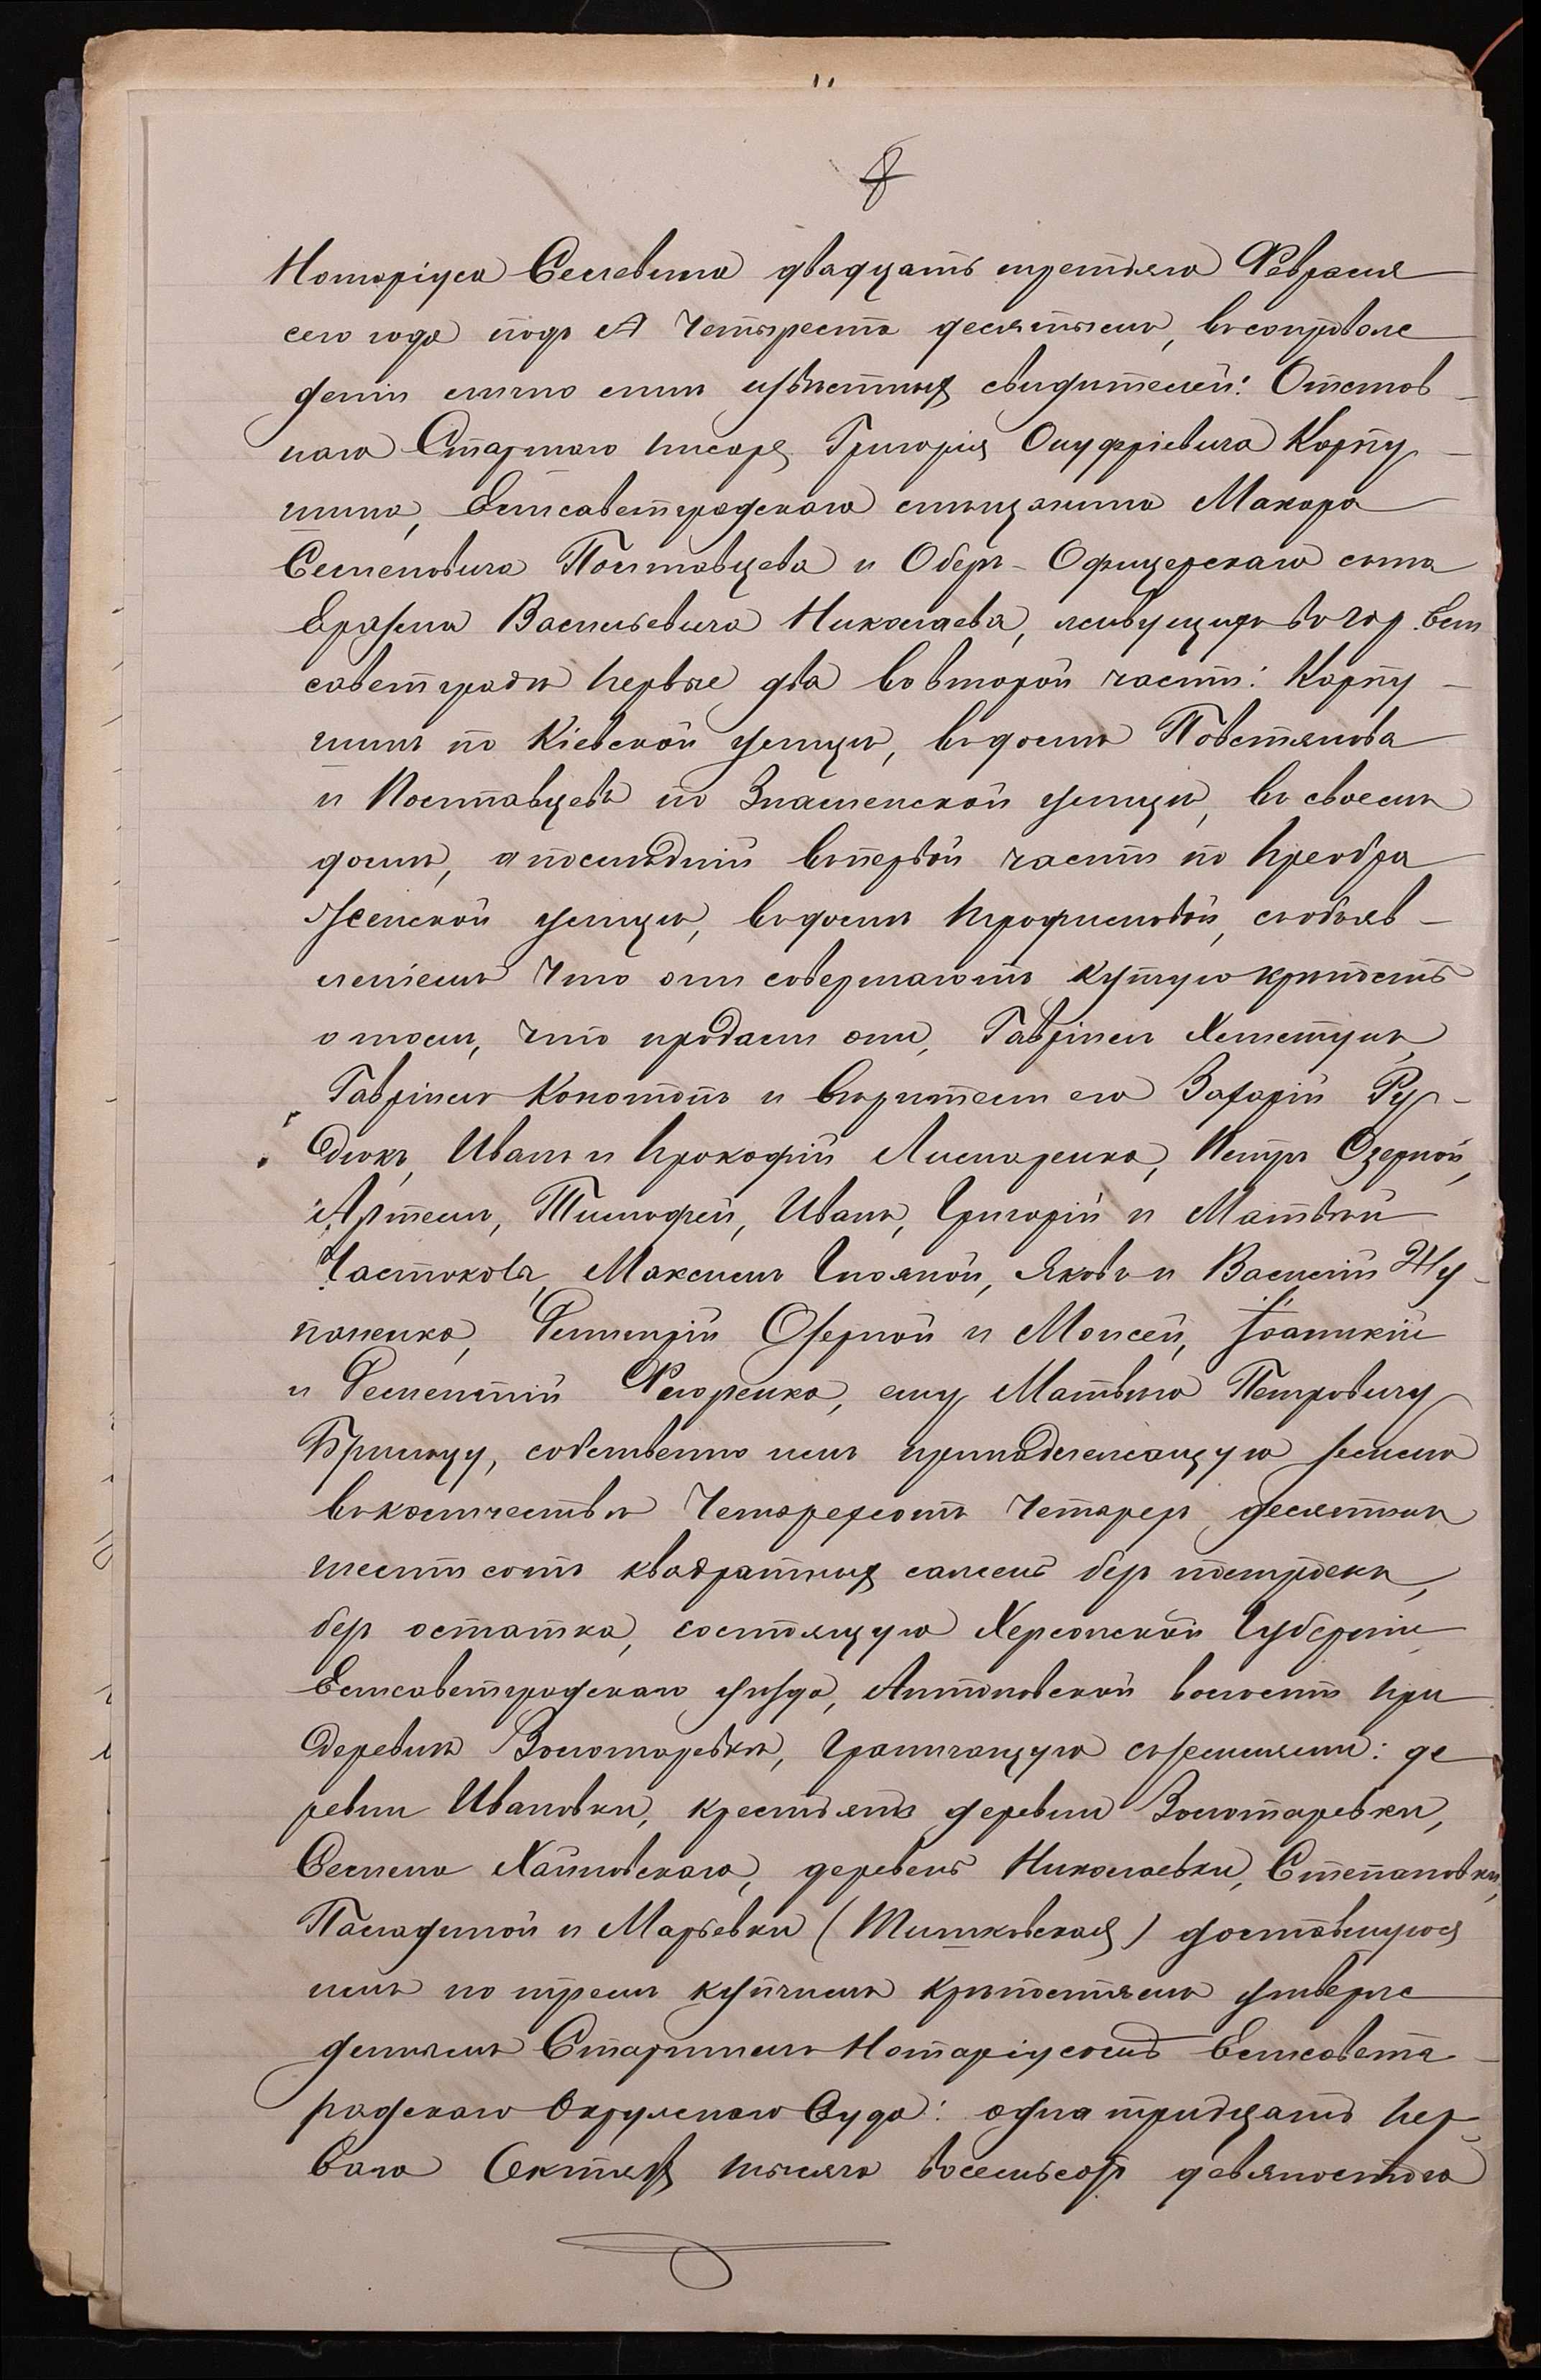 8
Нотаріуса Селевина двадцать третьяго Февраля
сего года подъ № четыреста десятымъ, въ сопровож
деніи лично мнѣ извѣстныхъ свидѣтелей: Отстав-
наго Старшаго писаря Григорія Онуфріевича Карпу-
шина, Елисаветградскаго мѣщанина Макара
Семеновича Полтавцева и Оберъ-Офицерскаго сына
Еразма Васильевича Николаева, живущихъ въ гор. Ели
саветградѣ первые два во второй части: Карпу-
шинъ по Кіевской улицѣ, въ домѣ Повстянова
и Полтавцевъ по Знаменской улицѣ, въ своемъ
домѣ, а послѣдній въ первой части по Преобра
женской улицѣ, въ домѣ Трофимовой, съ объяв-
леніемъ что они совершаютъ купчую крѣпость
о томъ, что продали они, Гавріилъ Хеместунъ,
Гавріилъ Конотопъ и вѣрители его Захарій Ру-
дюкъ, Иванъ и Прокофій Листаренко, Петръ Озерной,
Артемъ, Тимофей, Иванъ, Григорій и Матвѣй
Частокова, Максимъ Гнояной, Яковъ и Василій Жу-
паненко, Дмитрій Озерной и Моисей, Іоанникій
и Дементій Федоренко, ему Матвѣю Петровичу
Бринзу, собственно имъ принадлежащую землю
въ количествѣ четырехсотъ четырехъ десятинъ
шестисотъ квадратныхъ сажень безъ построекъ,
безъ остатка, состоящую Херсонской Губерніи
Елисаветградскаго уѣзда, Антоновской волости при
деревнѣ Золотаревкѣ, граничащую съ землями: де
ревни Ивановки, крестьянъ деревни Золотаревки,
Семена Хайновскаго, деревень Николаевки, Степановки,
Палагиной и Марьевки (Тишковская) доставшуюся
имъ по тремъ купчимъ крѣпостямъ утверж
деннымъ Старшимъ Нотаріусомъ Елисаветг-
радскаго Окружнаго Суда: одна тридцать пер-
ваго Октября тысяча восемьсотъ девяностого